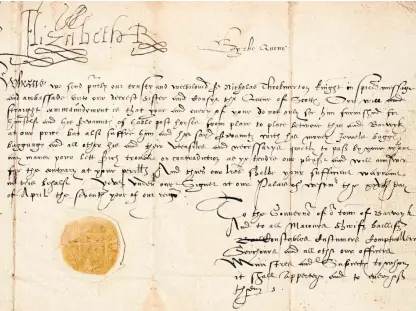 Elizabeth R
By the Quene
Wheras we send p[re]ntly our trusty and welbiloved Sr Nicholas Throkmorton knight in speciall message
and ambassade unto our derest sister and cousyn the Quene of Scotts. Our will and
straight commaundement is that you and every of you do not only see him furnished for
himself and his servants of hable post horses from place to place betwene and Barwyk
at our price but also suffre him and his said servants with his money Jewels bagge
baggage and all other his and their utensiles and necessaries quietly to passe by you
any maner your lett trouble or contradiction as ye tendre our plesure and will answer
for the contrary at your perills. And thes our lres shalbe your sufficient warrant
in this behalf. Yeven under our Signet at our Palace of the
of April the seventh yere of our reign
To the Governor of or town of Barwyk
And to all Maiours Shriefs bailiffs
Constables Customers Comptrollers
Serchours and all other our officers
Ministres and Subiects to whom
it shall apperteyn and to every of
them